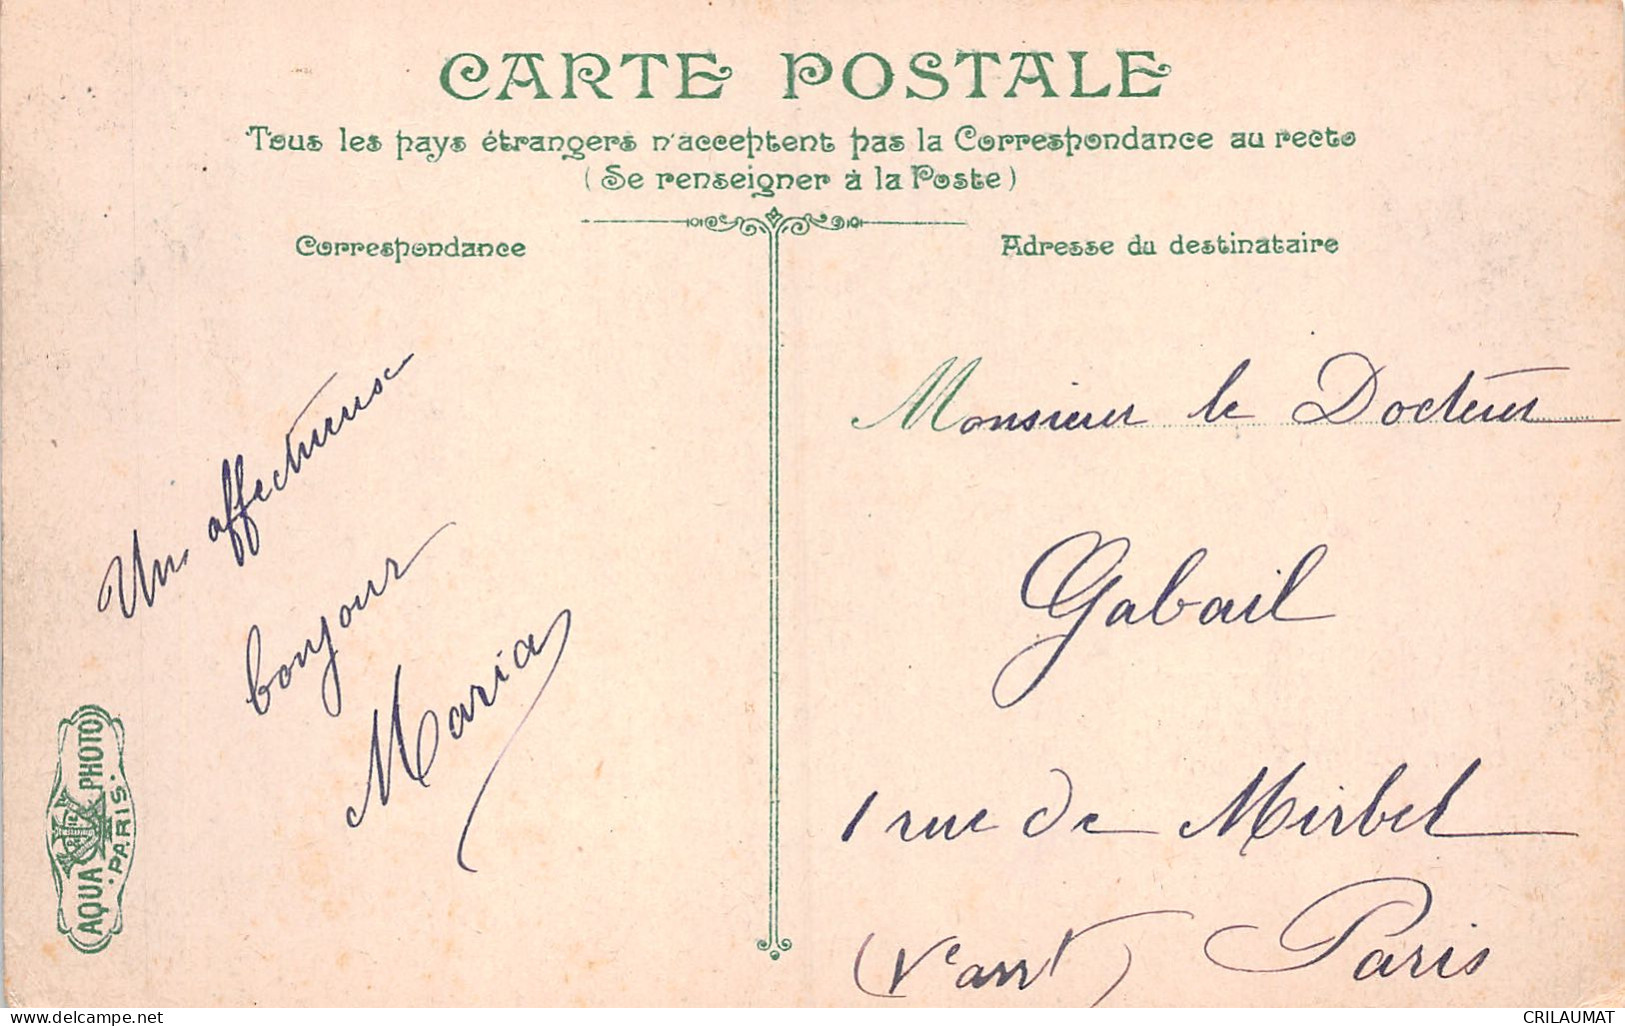 CARTE POSTALE
Tous les pays étrangers n'acceptent pas la Correspondance au recto
(Se renseigner à la Poste)
Correspondance
Un affectueux
bonjour
Maria
AQUA PHOTO
PARIS
Adresse du destinataire
Monsieur le Docteur
Gabail
1 rue de Mirbel
(Ve arrt) Paris
CRILAUMAT